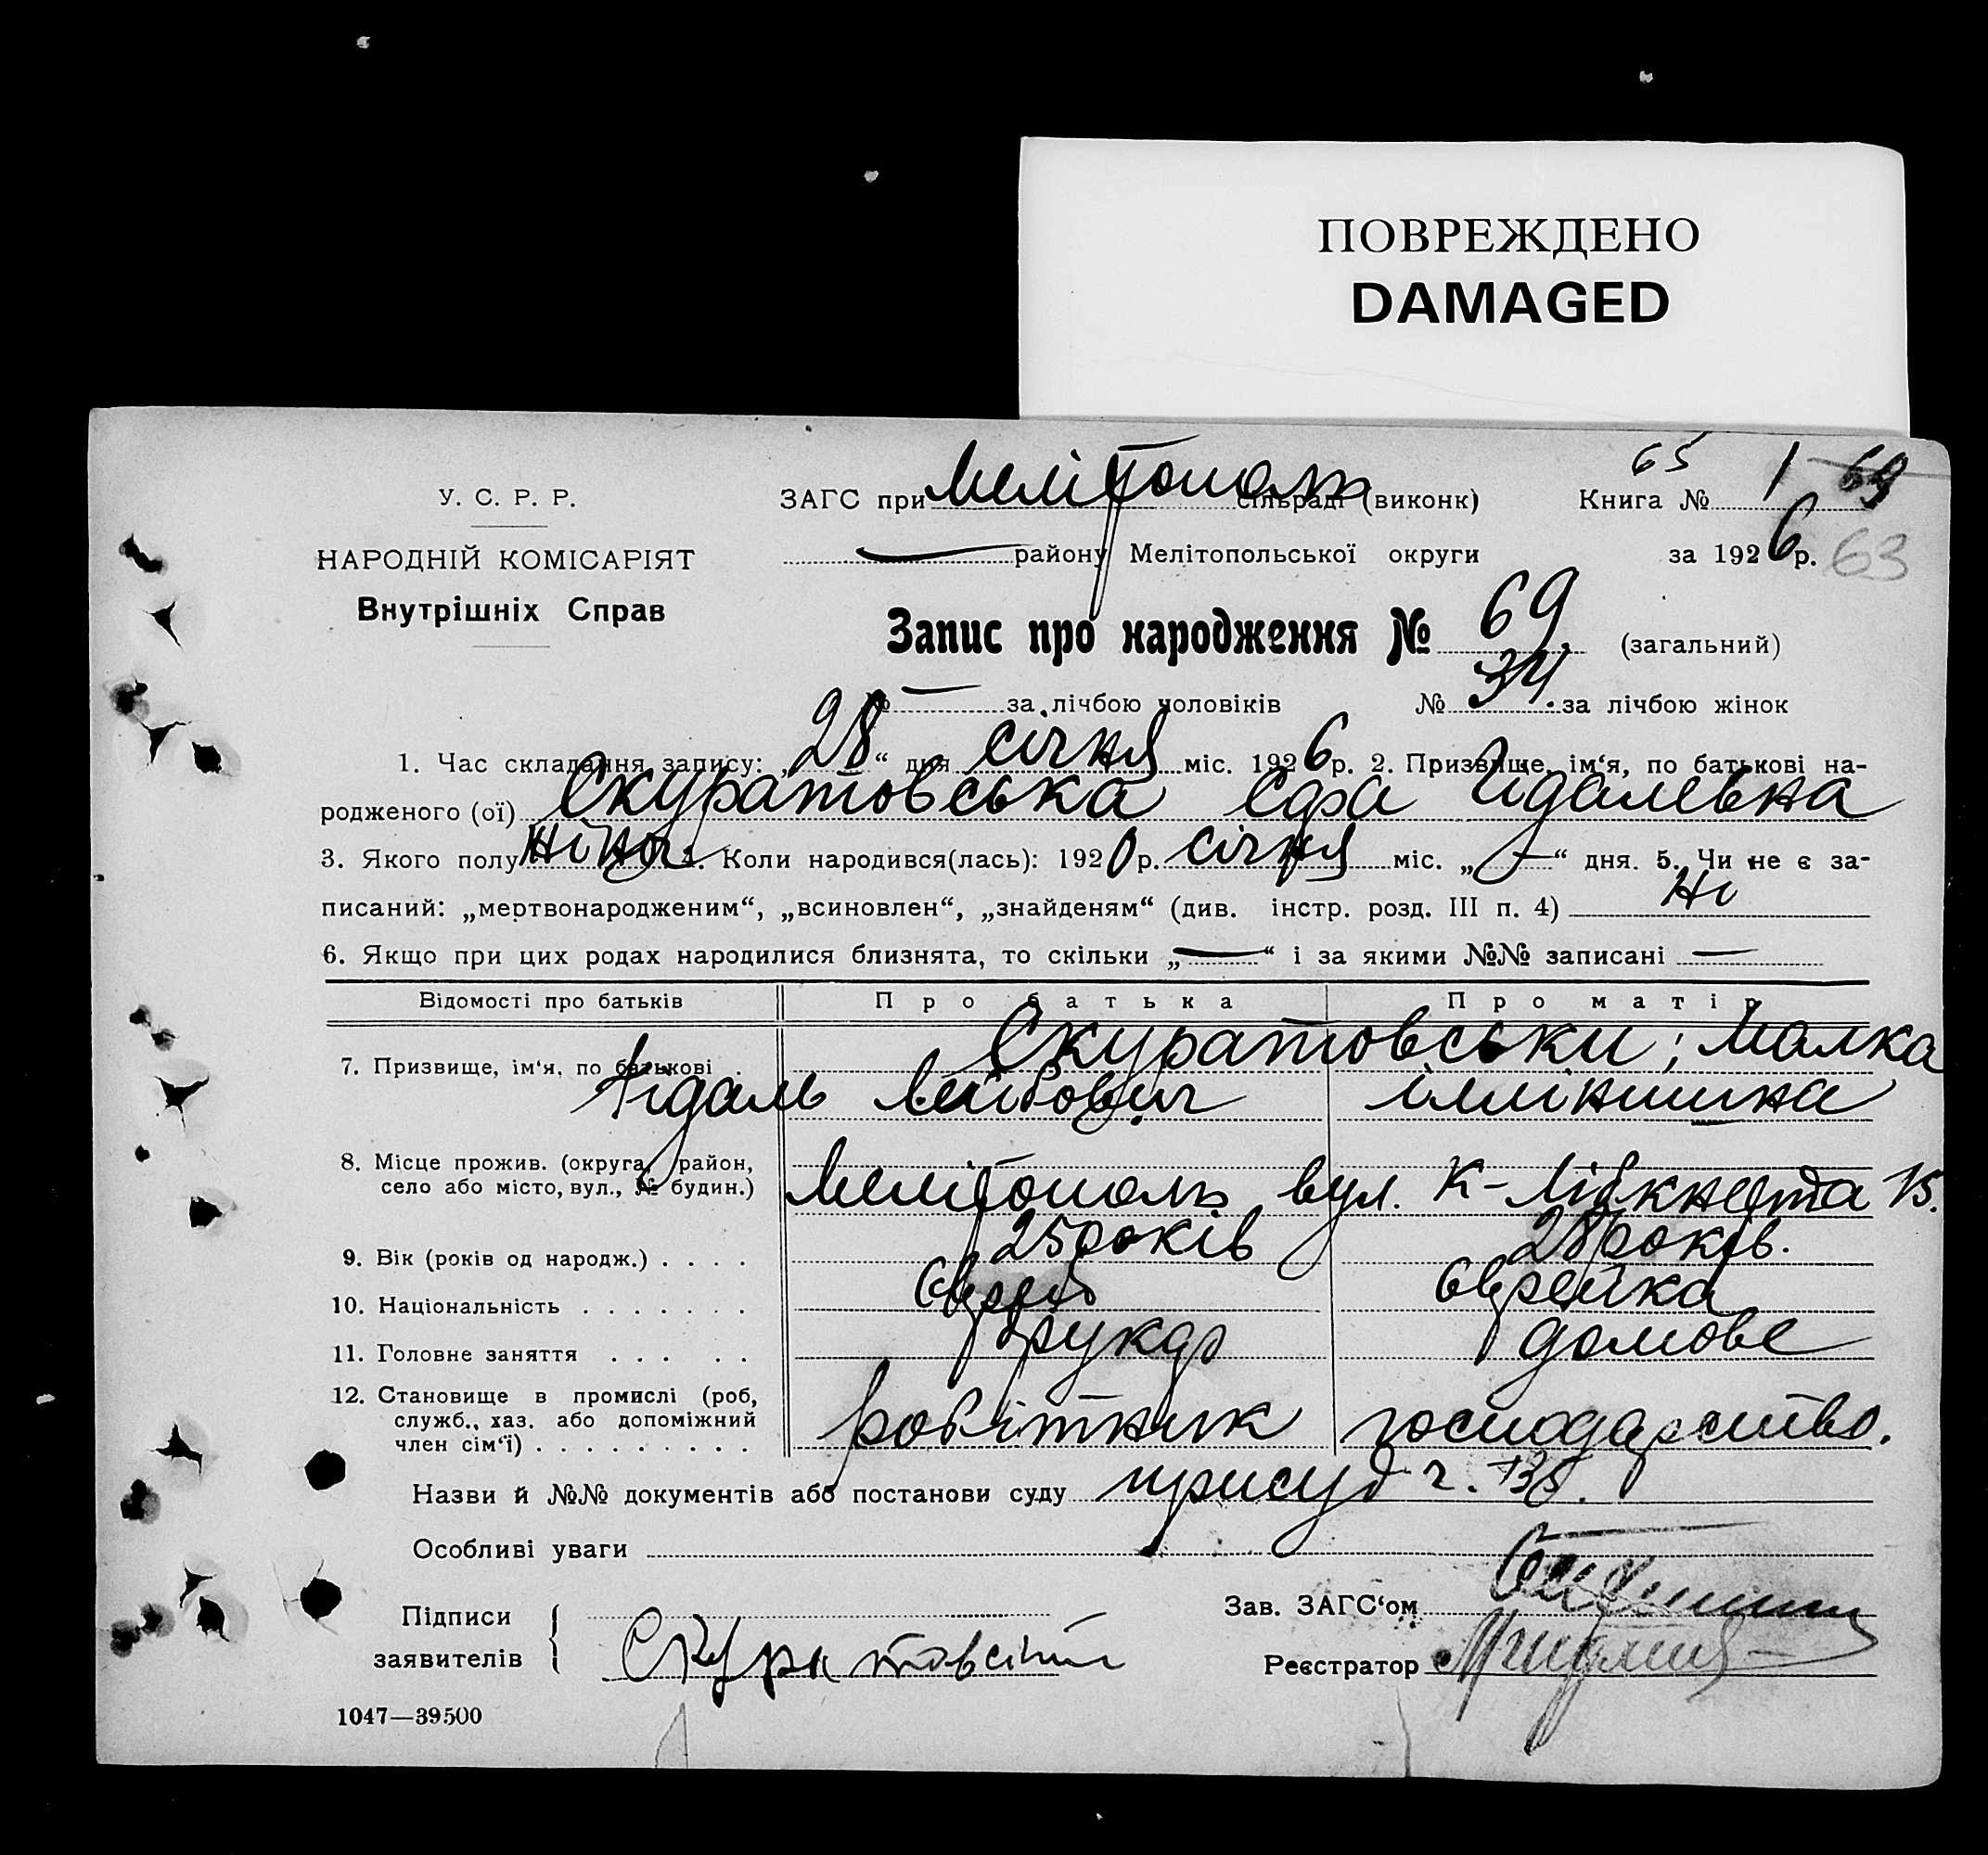 ПОВРЕЖДЕНО
DAMAGED
65 1 69
У. С. Р. Р.
ЗАГС при Мелітополь сільраді (виконк)
Книга №
НАРОДНІЙ КОМІСАРІЯТ
району Мелітопольської округи
за 1926 р. 63
Внутрішніх Справ
Запис про народження № 69. (загальний)
№ — за лічбою чоловіків № 34. за лічбою жінок
1. Час складання запису: „28“ дня січня міс. 1926 р. 2. Призвище, ім‘я, по батькові на-
родженого (ої) Скуратовська Єфа Йдалевна
3. Якого полу жіноч. 4. Коли народився(лась): 1920 р. січня міс. „ “ дня. 5. Чи не є за-
писаний: „мертвонародженим“, „всиновлен“, „знайденям“ (див. інстр. розд. III п. 4) Ні
6. Якщо при цих родах народилися близнята, то скільки „—“ і за якими №№ записані —
Відомості про батьків Про батька Про матір
7. Призвище, ім‘я, по батькові . Скуратовськи; Малка
Айдаль Лейбович
8. Місце прожив. (округа, район,
село або місто, вул., № будин.) Мелітополь вул. К-Лібкнехта 15.
9. Вік (років од народж.) . . . . 25 років 28 років.
10. Національність . . . . . . . Єврей Єврейка
11. Головне заняття . . . . . друкар домове
12. Становище в промислі (роб,
служб., хаз. або допоміжний
член сім‘ї) . . . . . . . . . робітник господарство.
Назви й №№ документів або постанови суду присуд ч. 135.
Особливі уваги
Підписи
заявителів
Зав. ЗАГС‘ом
Реєстратор
1047—39500